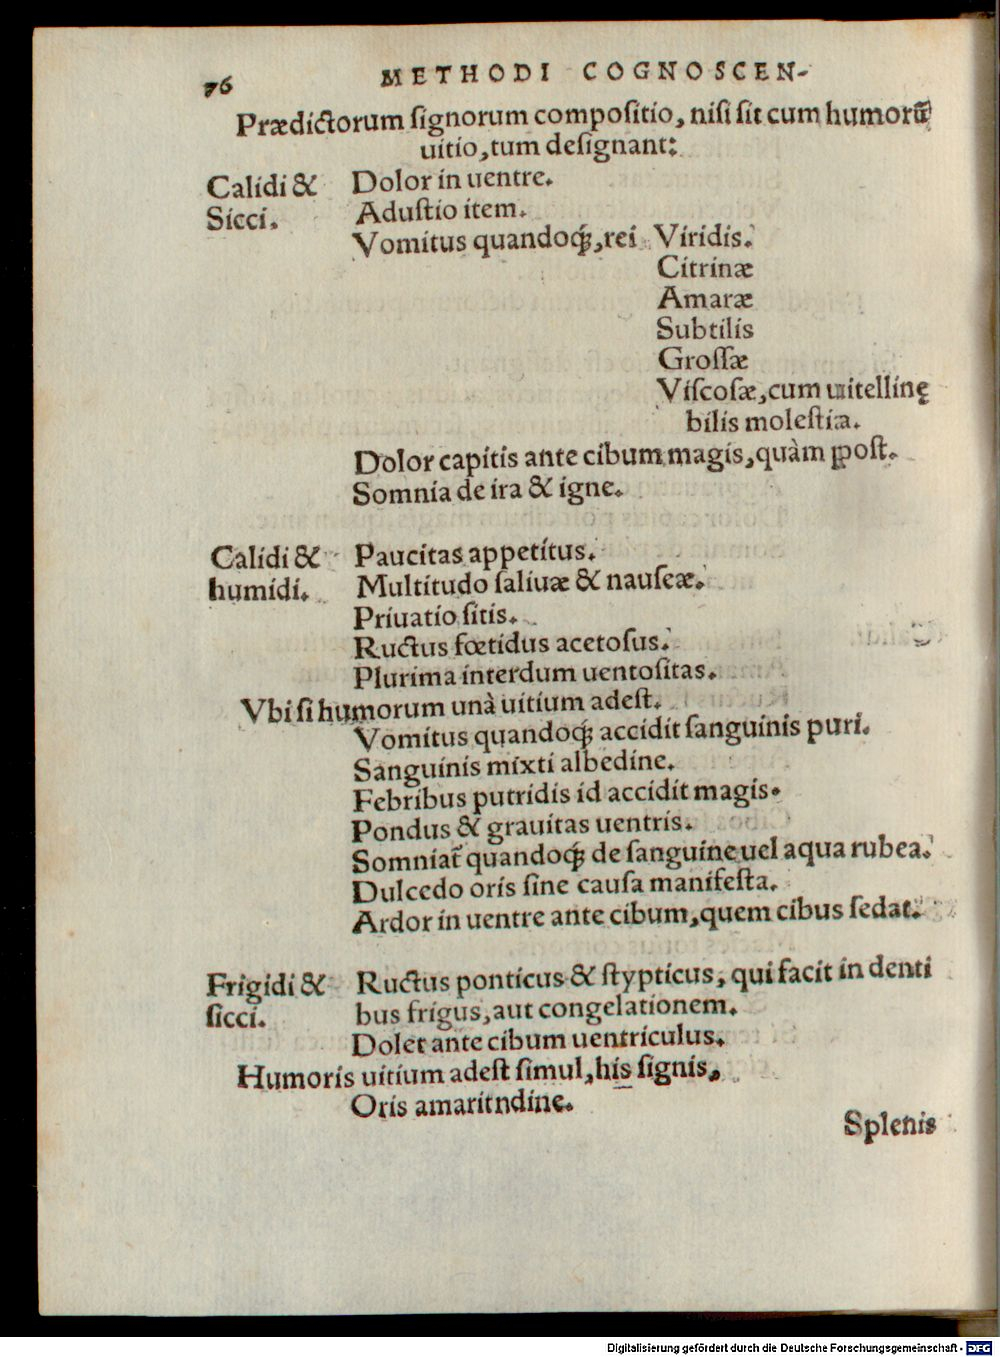 76 METHODI COGNOSCEN-
Prædictorum ſignorum compoſitio, niſi ſit cum humorū
uitio, tum deſignant:
Calidi & Dolor in uentre.
Sicci. Aduſtio item.
Vomitus quandoqꝫ, rei Viridis.
Citrinæ
Amaræ
Subtilis
Groſſæ
Viſcoſæ, cum uitellinę
bilis moleſtia.
Dolor capitis ante cibum magis, quàm poſt.
Somnia de ira & igne.
Calidi & Paucitas appetitus.
humidi. Multitudo ſaliuæ & nauſeæ.
Priuatio ſitis.
Ructus fœtidus acetoſus.
Plurima interdum uentoſitas.
Vbi ſi humorum unà uitium adeſt.
Vomitus quandoqꝫ accidit ſanguinis puri.
Sanguinis mixti albedine.
Febribus putridis id accidit magis.
Pondus & grauitas uentris.
Somniat᷑ quandoqꝫ de ſanguine uel aqua rubea.
Dulcedo oris ſine cauſa manifeſta.
Ardor in uentre ante cibum, quem cibus ſedat.
Frigidi & Ructus ponticus & ſtypticus, qui facit in denti
ſicci. bus frigus, aut congelationem.
Dolet ante cibum uentriculus.
Humoris uitium adeſt ſimul, his ſignis,
Oris amaritndine.
Splenis
Digitalisierung gefördert durch die Deutsche Forschungsgemeinschaft - DFG